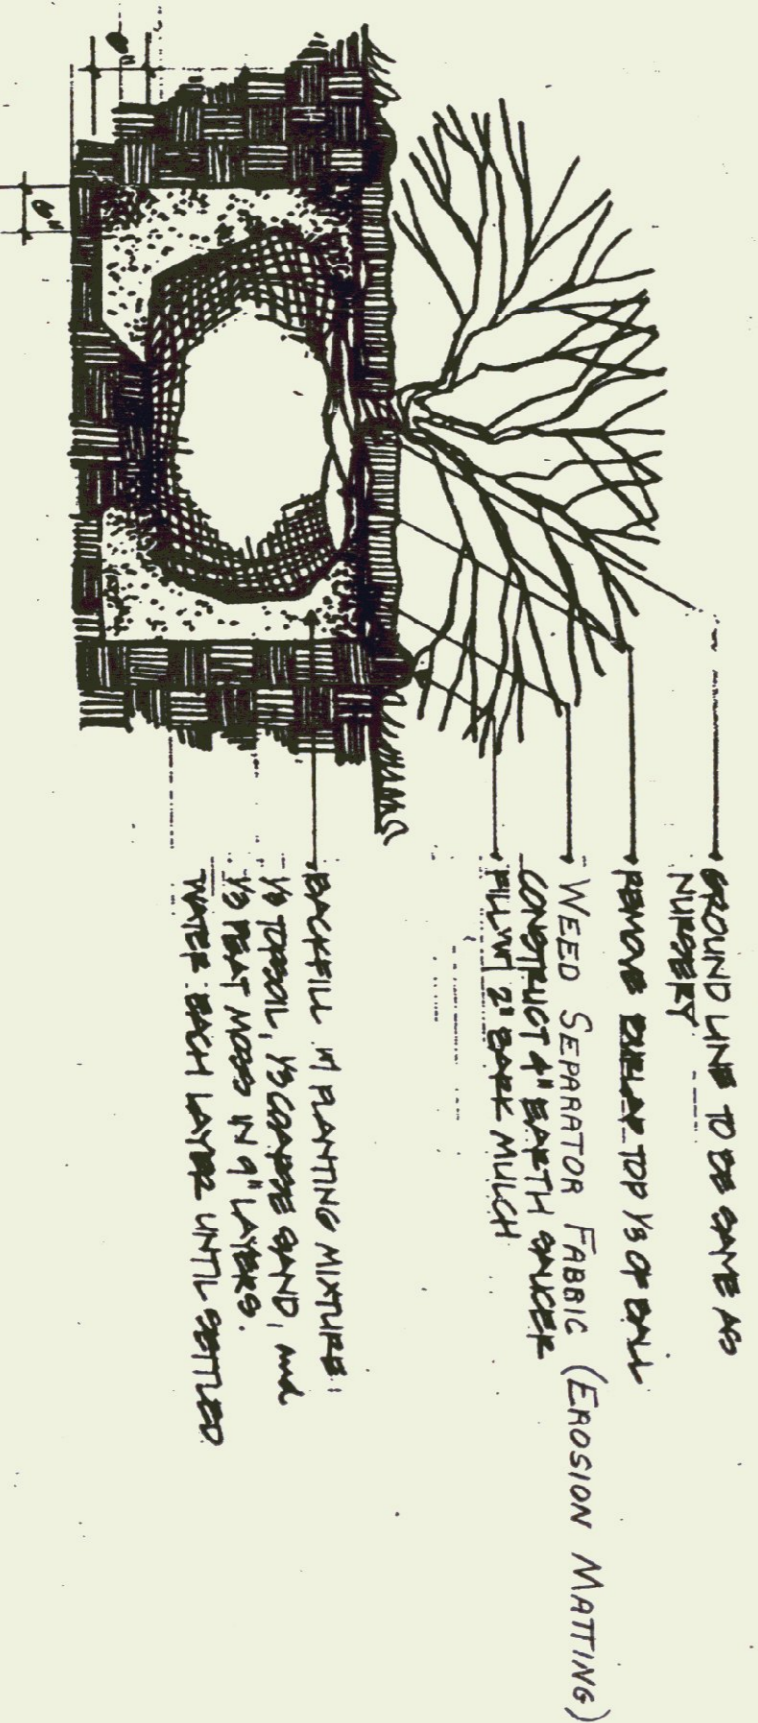 GROUND LINE TO BE SAME AS
NURSERY
REMOVE BURLAP TOP 1/3 OF BALL
WEED SEPARATOR FABRIC (EROSION MATTING)
CONSTRUCT 4" EARTH SAUCER
FILL W/ 2" BARK MULCH
BACKFILL W/ PLANTING MIXTURE:
1/3 TOPSOIL, 1/3 COARSE SAND, and
1/3 PEAT MOSS IN 9" LAYERS.
WATER EACH LAYER UNTIL SETTLED